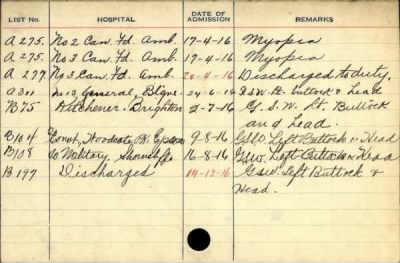 LIST NO. HOSPITAL DATE OF ADMISSION REMARKS
A 275. No 2 Can. Fd. Amb. 17-4-16 Myopia
A 275. No 3 Can. Fd. Amb. 17-4-16 Myopia
A 279 No 3 Can. Fd. Amb. 20-4-16 Discharged to duty.
A 311 No 13 General, Blgne. 24-6-16 G.S.W. Lt. Buttock & Head
B 75 Kitchener. Brighton 2-7-16 G.S.W. Lt. Buttock
and Head.
B 104 Convt. Woodcote Pk. Epsom 9-8-16 GSW Left Buttock & Head
B 108 Military, Shorncliffe 16-8-16 GSW. Left Buttock & Head
B 199 Discharged 14-12-16 GSW. Left Buttock &
Head.